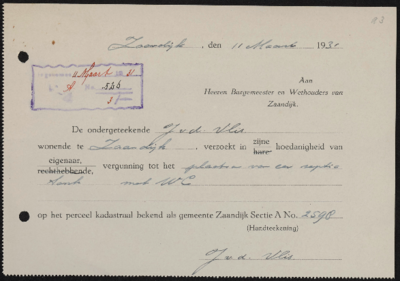 Zaandijk, den 11 Maart 1931
11 Maart 31
No. 566
Aan
Heeren Burgemeester en Wethouders van
Zaandijk.
De ondergeteekende J. v.d. Vlis
wonende te Zaandijk, verzoekt in zijne hare hoedanigheid van
eigenaar, rechthebbende, vergunning tot het plaatsen van een septic
tank met WC
op het perceel kadastraal bekend als gemeente Zaandijk Sectie A No. 2590
(Handteekening)
J. v.d. Vlis